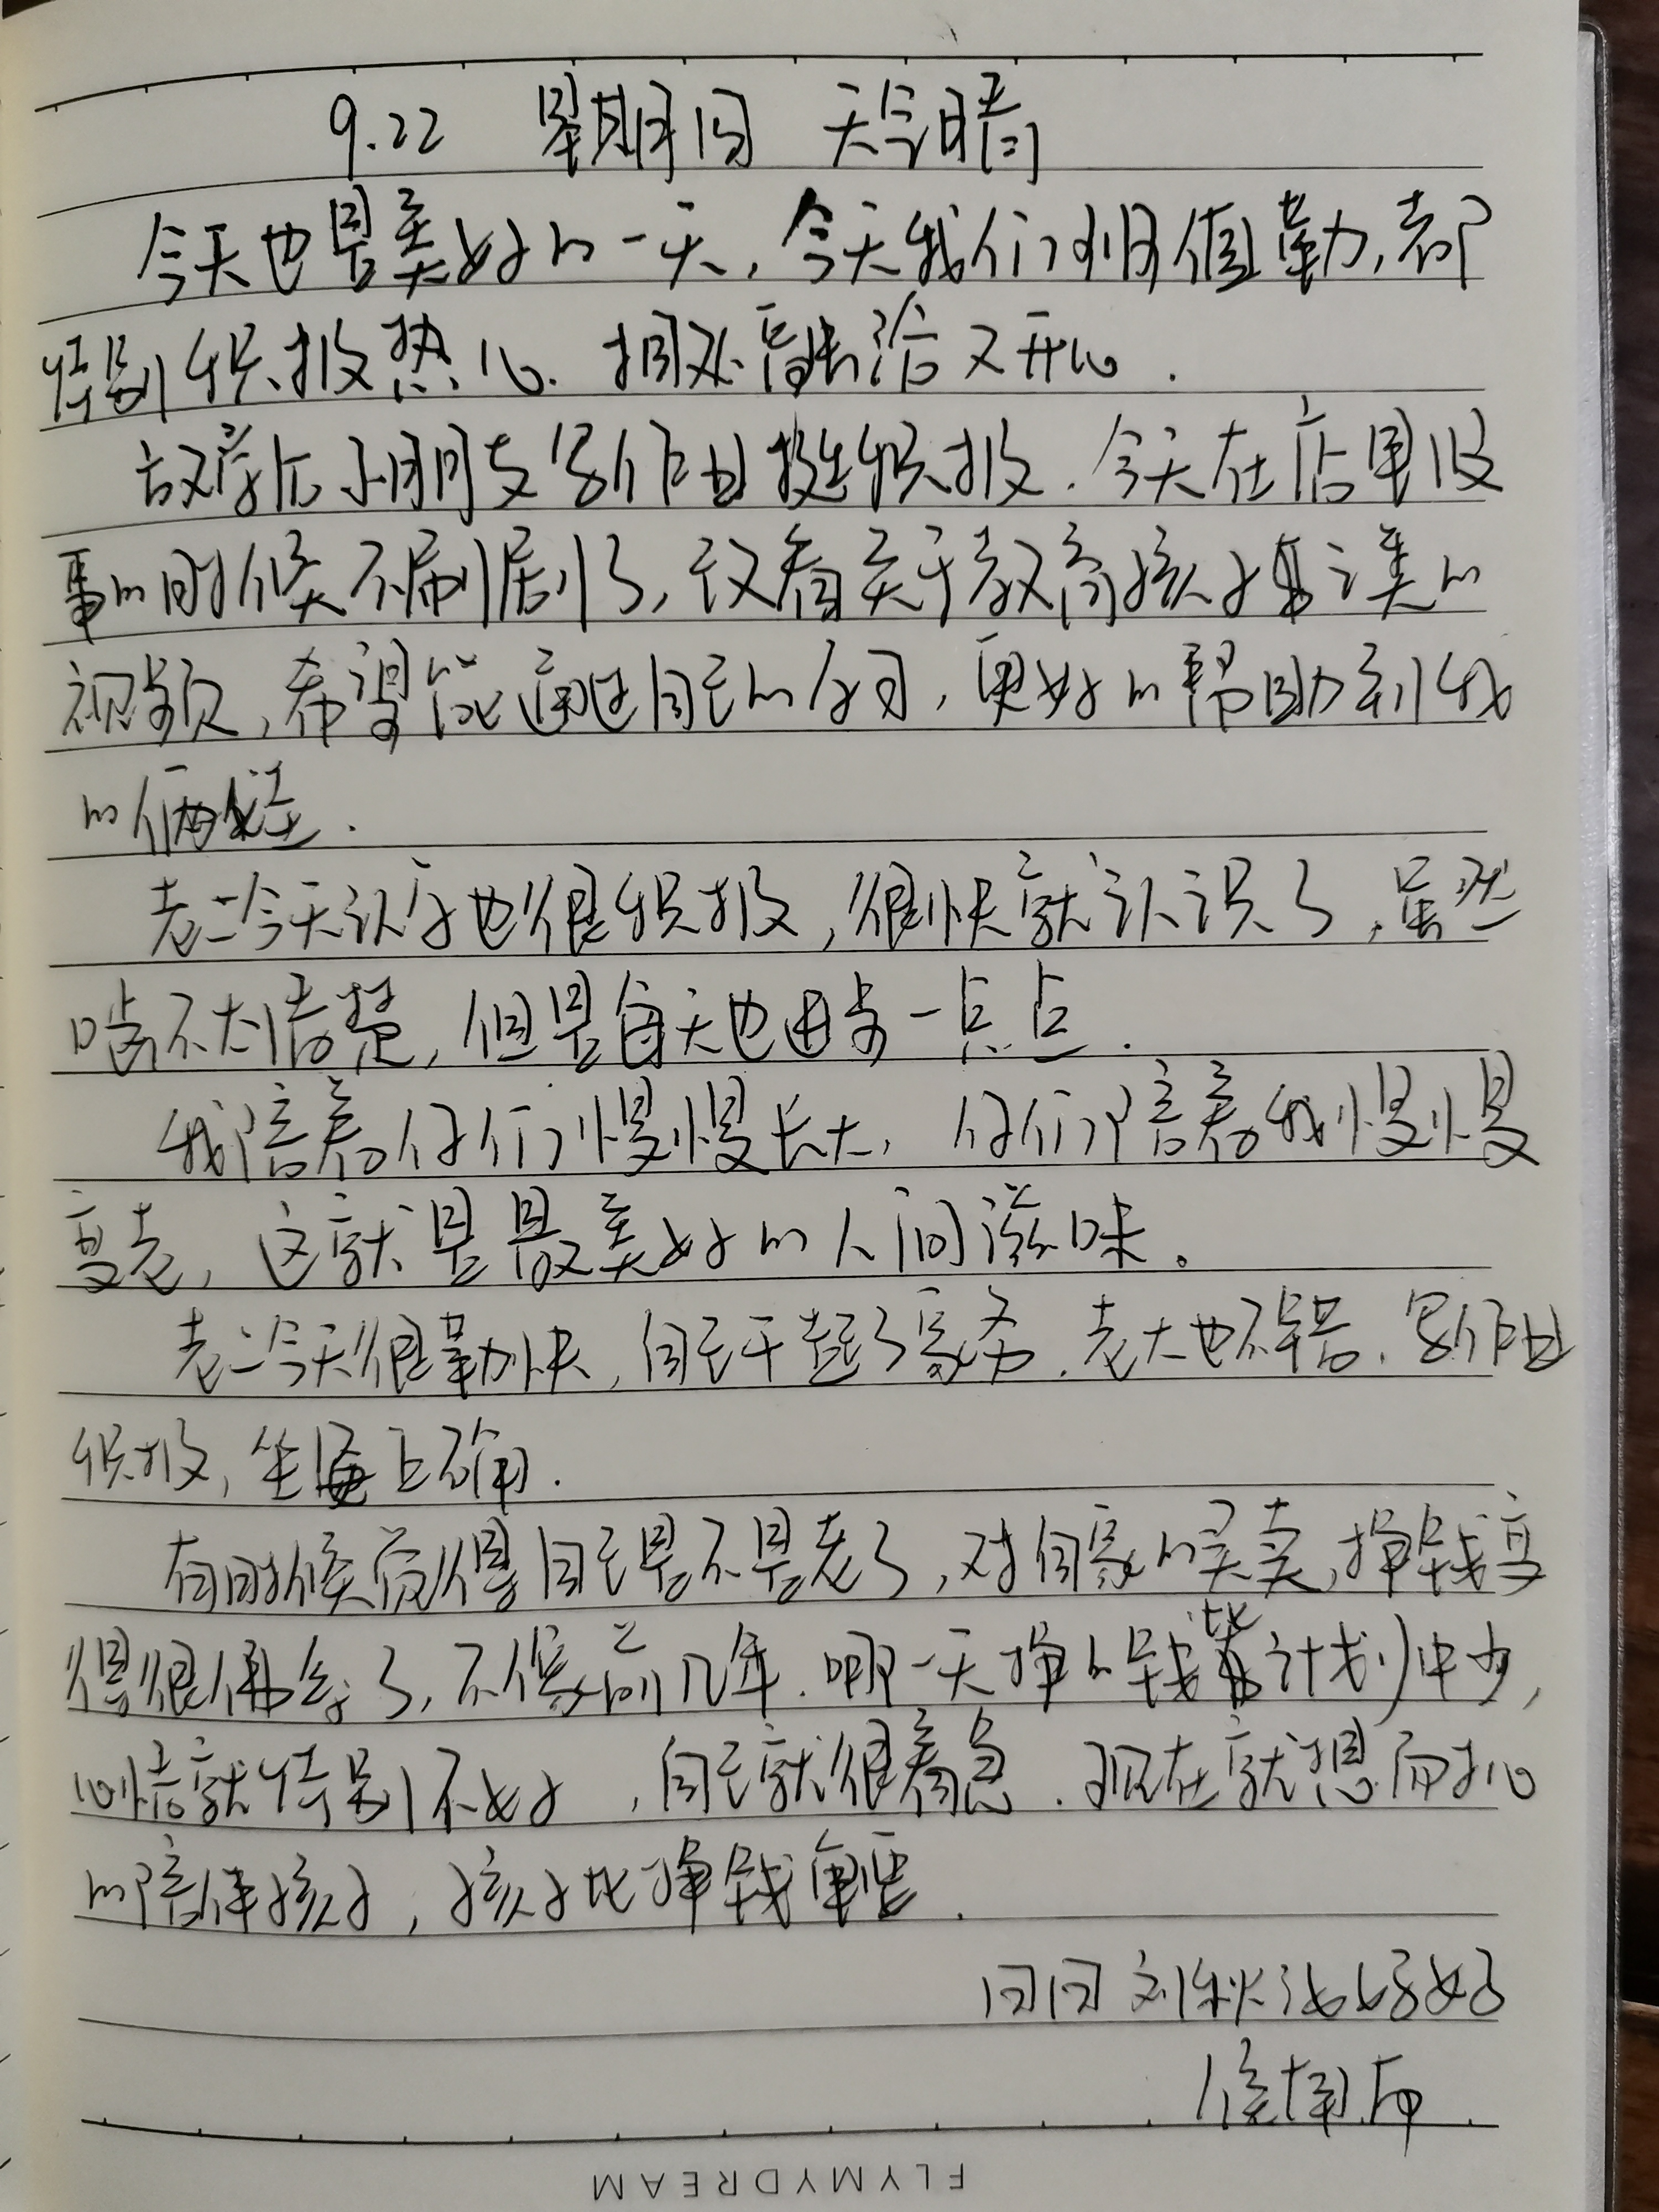 9.22 星期四 天气晴
今天也是美好的一天，今天我们小组值勤，都
特别积极热心．相处融洽又开心．
放学后小朋友写作业挺积极．今天在店里没
事的时候不刷剧了，改看关于教育孩子这类的
视频，希望能通过自己的学习，更好的帮助到我
的俩娃．
老二今天认字也很积极，很快就认识了，虽然
嘴不太清楚，但是每天进步一点点．
我陪着你们慢慢长大，你们陪着我慢慢
变老，这就是最美好的人间滋味。
老二今天很勤快，自己干起了家务．老大也不错．写作业
积极，坐姿正确．
有时候觉得自己是不是老了，对自家的买卖，挣钱变
得很佛系了，不像前几年．哪一天挣的钱比计划中少，
心情就特别不好，自己就很着急．现在就想用心
的陪伴孩子，孩子比挣钱重要．
同同 刘 好好
FLYMYDREAM